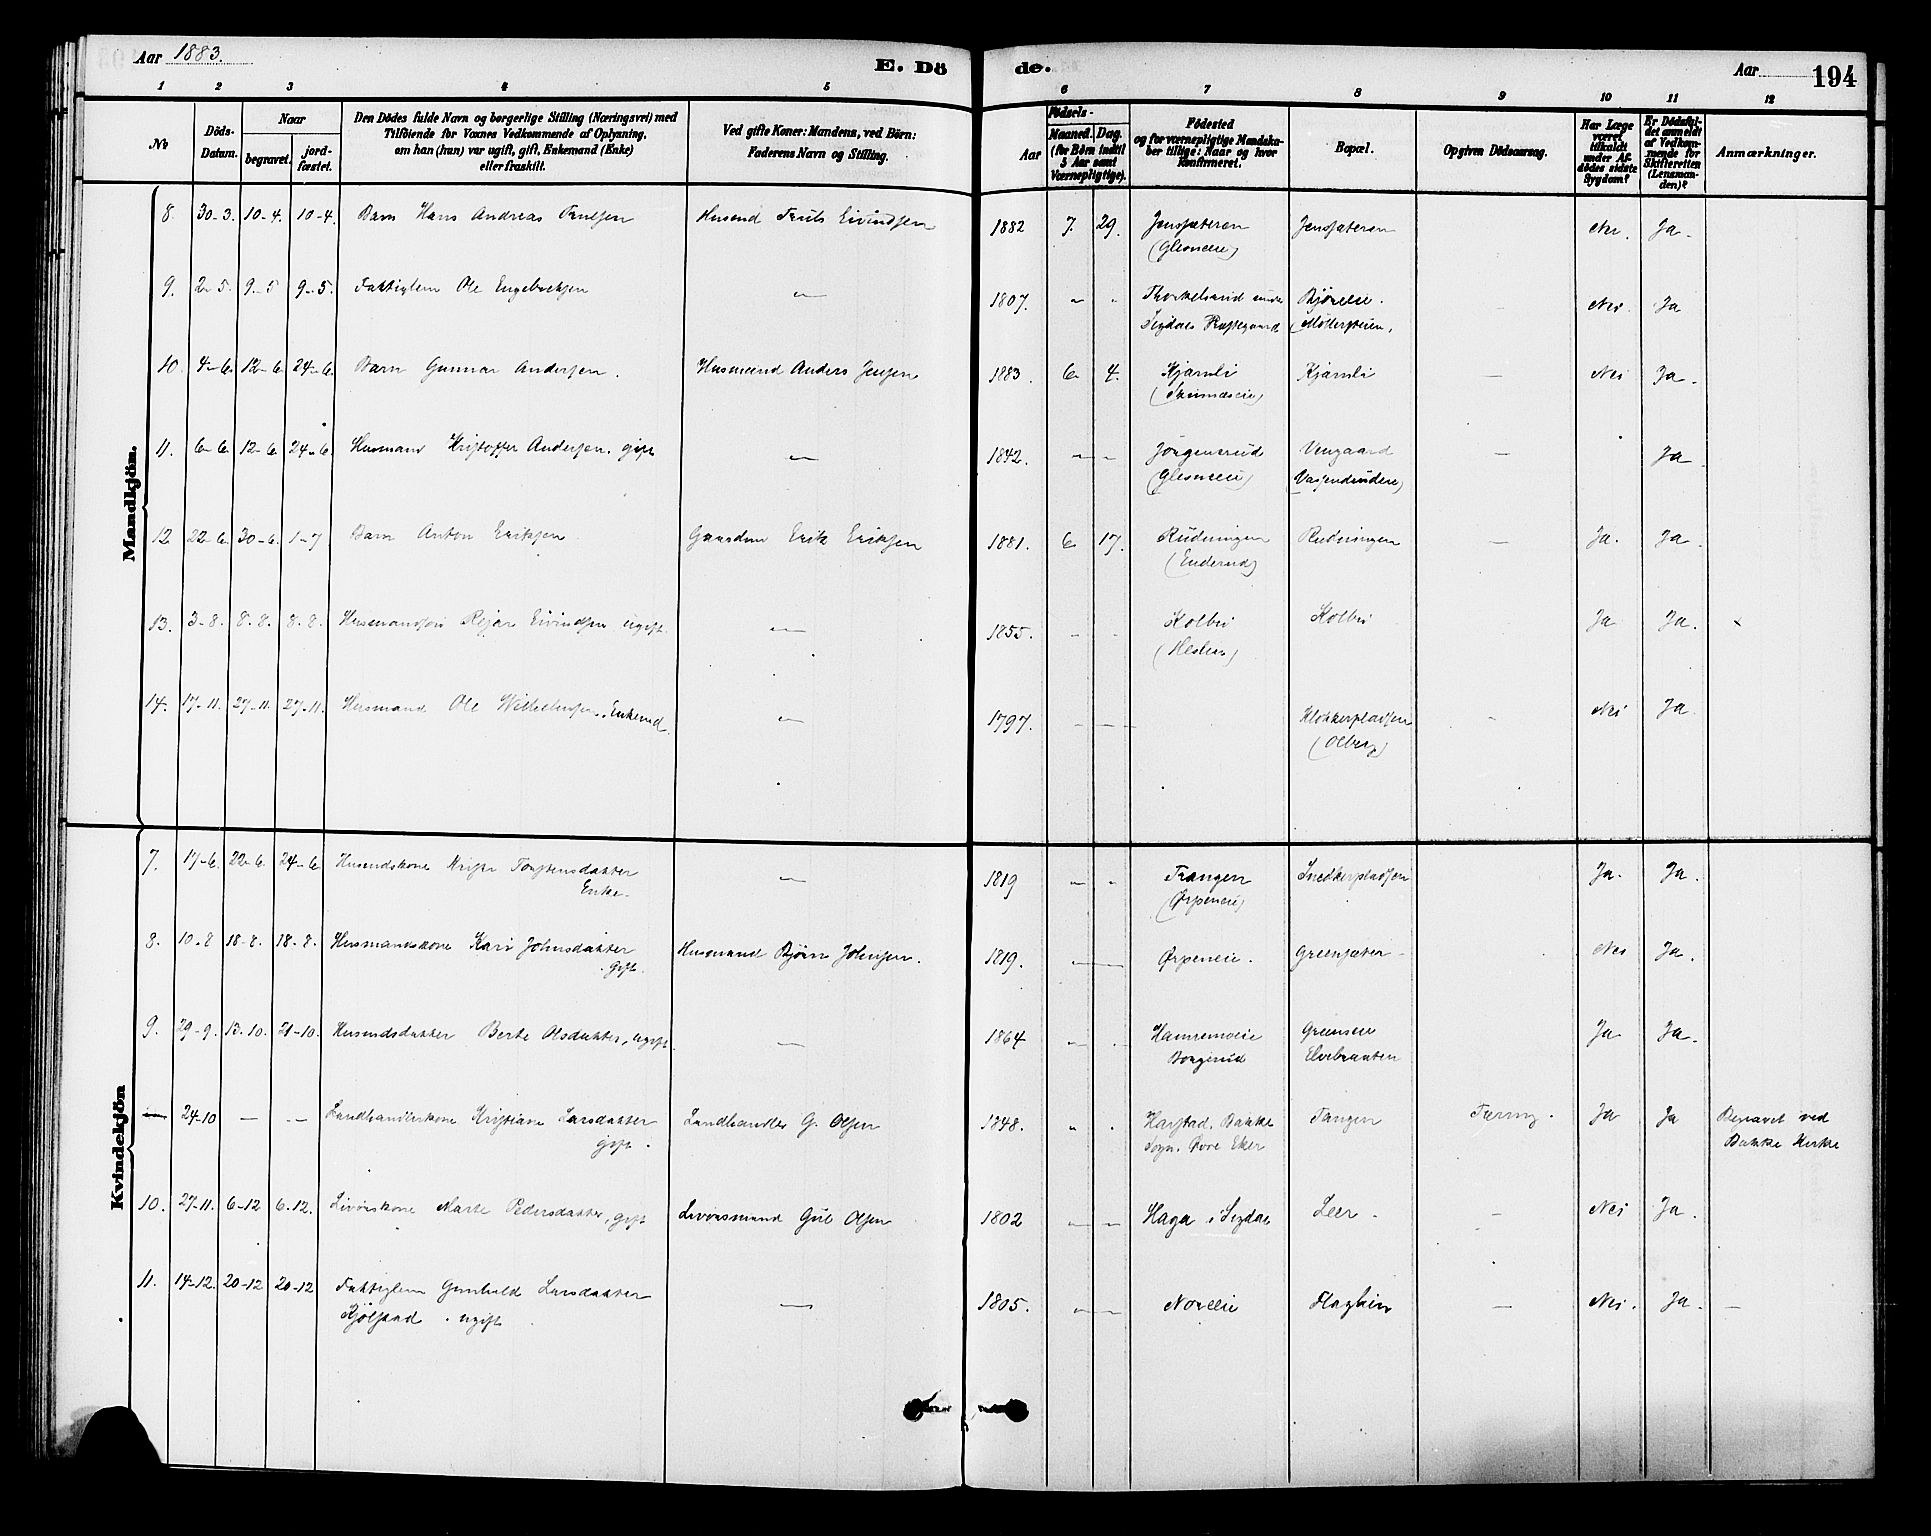 Aar 1883.
E. Dö
de.
Aar
194
1 2 3 4 5 6 7 8 9 10 11 12
No
Döds-Datum.
Naar
begravet.
jord-fæstet.
Den Dödes fulde Navn og borgerlige Stilling (Næringsvei) med
Tilföiende for Voxnes Vedkommende af Oplysning,
om han (hun) var ugift, gift, Enkemand (Enke)
eller fraskilt.
Ved gifte Koner: Mandens, ved Börn:
Faderens Navn og Stilling.
Födsels-
Aar
Maaned. Dag.
(for Börn indtil
5 Aar samt
Værnepligtige).
Födested
og for værnepligtige Mandska-
ber tillige: Naar og hvor
konfirmeret.
Bopæl.
Opgiven Dödsaarsag.
Har Læge
været
tilkaldt
under Af-
dödes sidste
Sygdom?
Er Dödsfal-
det anmeldt
af Vedkom-
mende for
Skifteretten
(Lensman-
den)?
Anmærkninger.
Mandkjön.
8. 30-3. 10-4. 10-4. Barn Hans Andreas Trulsen Husmd Truls Eivindsen 1882 7. 29. Jenssæteren Jenssæteren Nei. Ja.
(Glesneeie)
9. 2-5. 9-5 9-5. Fattiglem Ole Engebretsen — 1807. " " Thorkelsrud under Bjøreeie. Nei. Ja
Sigdals Præstegaard (Møllerstuen)
10. 4-6. 12-6. 24-6. Barn Gunnar Andersen. Husmand Anders Jensen 1883. 6. 4. Kjærnli Kjærnli — Nei Ja.
11. 6-6. 12-6. 24-6. Husmand Kristoffer Andersen. gift — 1842. — — Jørgensrud Vengaard — Ja
(Glesneeie)
12. 22-6. 30-6. 1-7 Barn Anton Eriksen Gaardm Erik Eriksen 1881. 6 17. Rudningen Rudningen — Ja. Ja.
(Enderud)
13. 3-8. 8-8. 8-8. Husmandssøn Reiar Eivindsen ugift. — 1855. - - Kolbu Kolbu Ja Ja. x
14. 17-11. 27-11. 27-11. Husmand Ole Wilhelmsen. Enkemd — 1797. — — Klokkerpladsen - Nei Ja
(Olberg)
Kvindekjön
7. 17-6. 22-6. 24-6 Husmdskone Torstensdatter — 1819 " " Trangen Snedkerpladsen Ja. Ja.
Enke. (Ørpeneie)
8. 10-8 18-8. 18-8. Husmandskone Kari Johnsdatter Husmand Bjørn Johnsen. 1819. — — Ørpeneie. Greensæter - Nei Ja.
gift.
9. 29-9. 13-10. 21-10. Husmdsdatter Berte Olsdatter, ugift. — 1864 " . Hannemoeie Greenseie Ja Ja.
Borgerud Elvebraaten
— 24-10 — — Landhandlerkone Kristiane Larsdatter Landhandler G. Olsen 1848. " . Harstad. Bakke Tangen Tæring. Ja Ja Begravet ved
gift. Sogn. Øvre Eker Bakke Kirke
10. 27-11. 6-12 6-12. Livørskone Marte Pedersdatter, gift Livørsmand Gul Olsen 1802 — — Haga i Sigdal Leer. — Nei Ja.
11. 14-12. 20-12 20-12 Fattiglem Gunhild Larsdatter — 1805. — — Noreeie — Nei. Ja. —
Kjølstad. ugift.